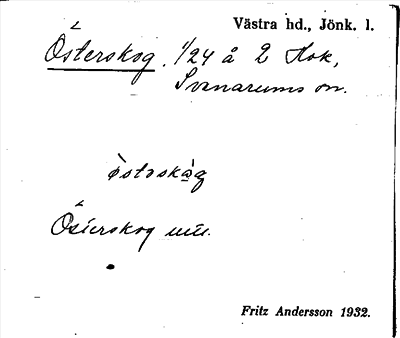 Västra hd., Jönk. l.
Österskog. 1/24 å 2 Hok,
Svenarums sn.
østəskàg
Österskog
Fritz Andersson 1932.